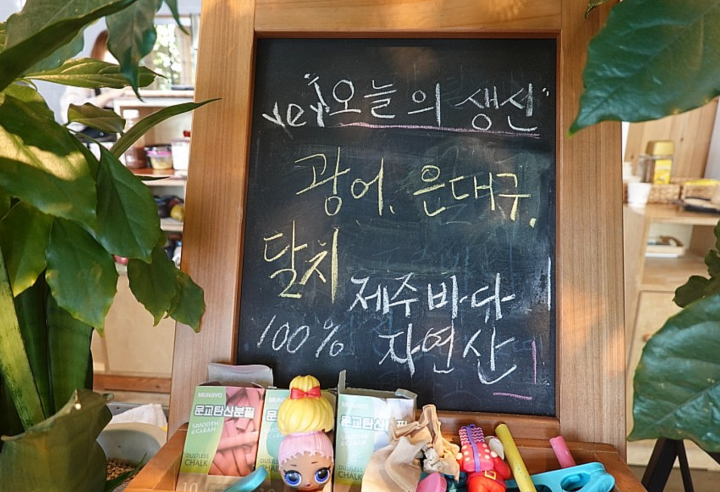 yey! "오늘의 생선"
광어, 은대구,
달치
제주바다
100% 자연산
MUNGYO
문교탄산분필
SMOOTH
& CLEAN
DUSTLESS
CHALK
10
문교탄산
DUSTLESS
CHALK